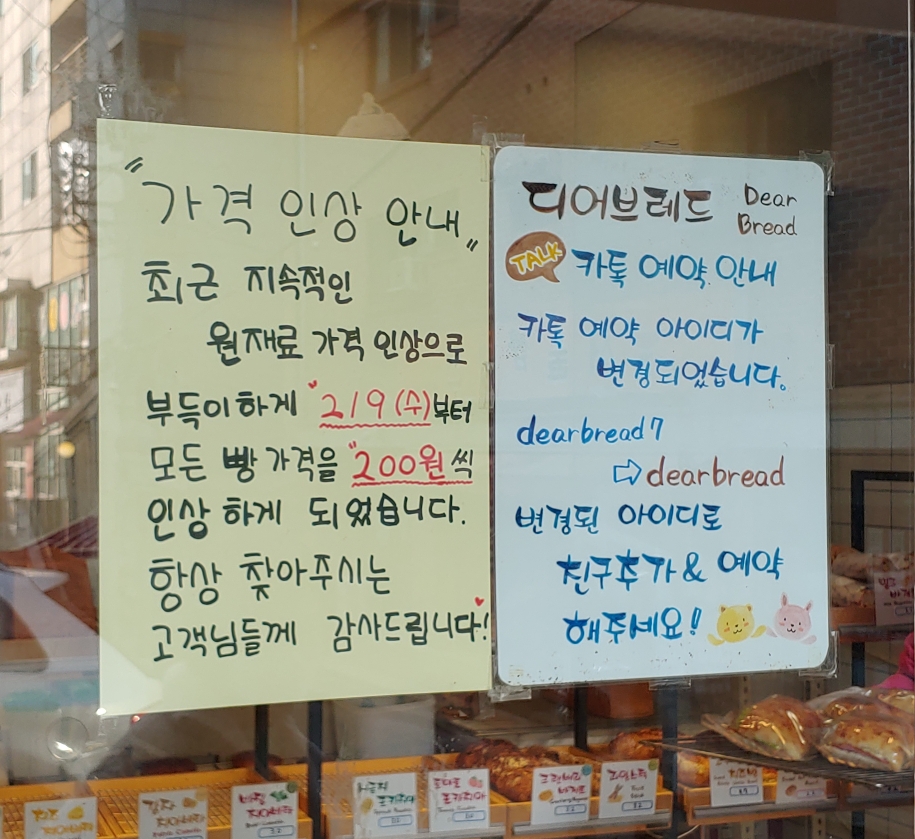 "가격 인상 안내"
최근 지속적인
원재료 가격 인상으로
부득이하게 "2/9(수)부터
모든 빵 가격을 "200원씩
인상하게 되었습니다.
항상 찾아주시는
고객님들께 감사드립니다!
디어브레드 Dear
Bread
TALK 카톡 예약 안내
카톡 예약 아이디가
변경되었습니다.
dearbread7
⇨ dearbread
변경된 아이디로
친구추가 & 예약
해주세요!
치즈
치아바타
감자
치아바타